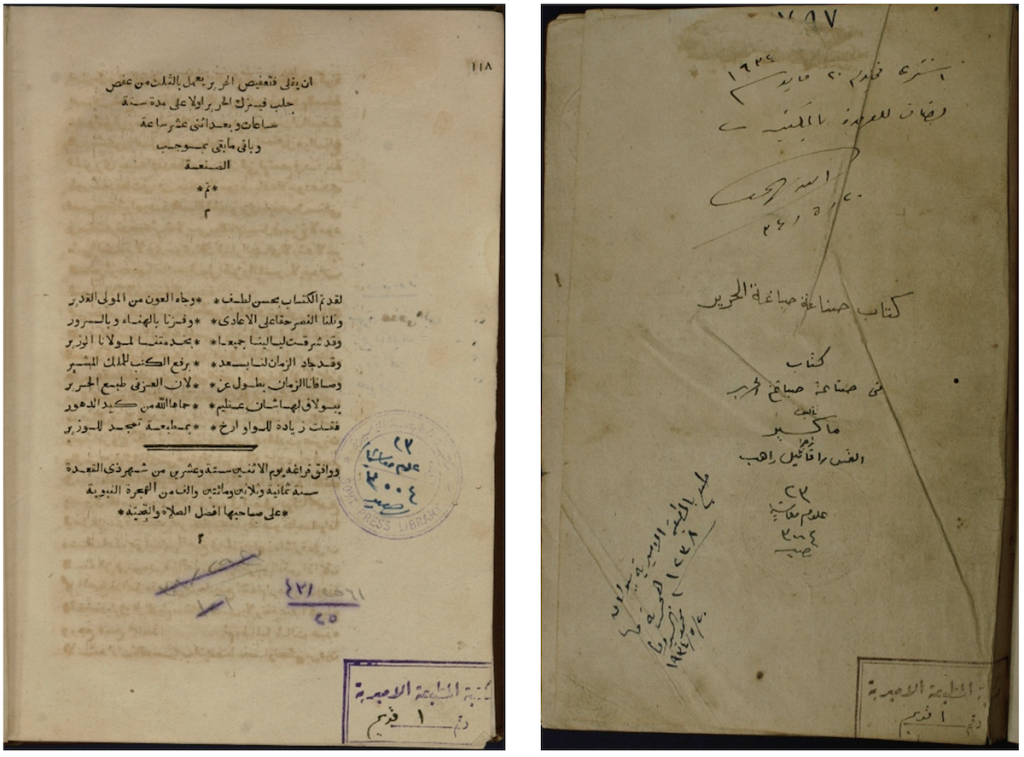 ١١٨
ان يغلى فتعفيص الحرير يعمل بالثلث من عفص
حلب فيترك الحرير اولا على مدة ستة
ساعات وبعد اثنى عشر ساعة
وباقى مابقى بموجب
الصنعة
*تم*
م
لقد تم الكتاب بحسن لطف * *وجاه العون من المولى القدير
ونلنا النصر حقا على الاعادى * *وفزنا بالهناء وبالسرور
وقد شرقت ليالينا جميعا * *بخدمتنا لمولانا الوزير
وقد جاد الزمان لنا بسعد * *برفع الكتب للملك المشير
وصافانا الزمان بطول عز * *لان العز فى طبع الحرير
ببولاق لها شان عظيم * *حماها الله من كيد الدهور
فقلت زيادة للواو ارخ * *بمطبعة تمجد للوزير
ووافق فراغه يوم الاثنين ستة وعشرين من شهر ذى القعدة
سنة ثمانية وثلاثين ومائتين والف من الهجرة النبوية
*على صاحبها افضل الصلاة والتحية*
م
٢٣
علوم معاشية
٣٠٠٤
PRESS LIBRARY
٤٣١
٢٥
مكتبة المطبعة الاميرية
رقم ١ قديم
٧٨٧
اشترى فى يوم ٢٠ مايو سنة ١٩٣٤
يضاف للعهدة بالمكتبة
٢٠/٥/٣٤
كتاب صناعة صباغة الحرير
كتاب
فى صناعة صباغة الحرير
تأليف
ماكير
القس رافائيل راهب
٢٣
علوم معاشية
٣٠٠٤
طبع بالمطبعة الاميرية ببولاق
١٢٣٨
المطبعة الاميرية
رقم ١ قديم